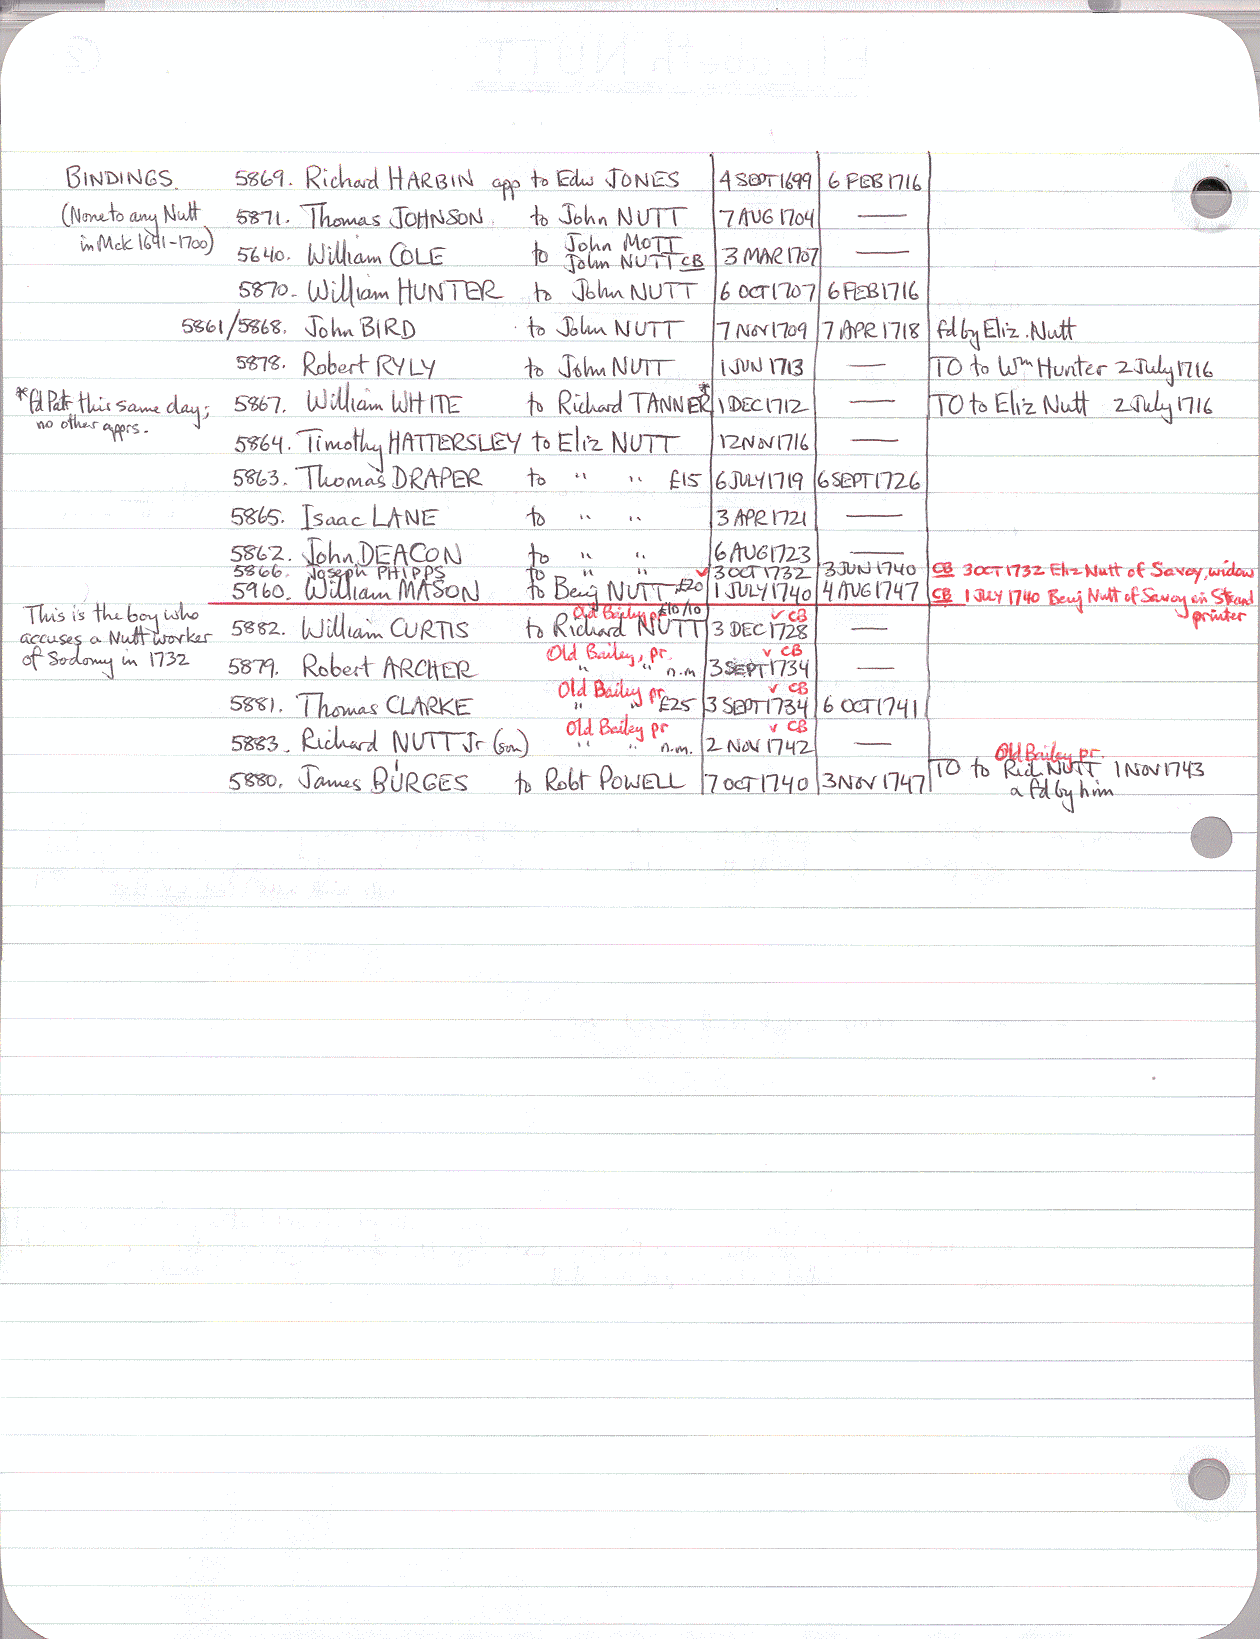 BINDINGS. 5869. Richard HARBIN app to Edw JONES 4 SEPT 1699 6 FEB 1716
(None to any Nutt 5871. Thomas JOHNSON to John NUTT 7 AUG 1704 —
in McK 1641-1700) 5640. William COLE to John MOTT
John NUTT CB 3 MAR 1707 —
5870. William HUNTER to John NUTT 6 OCT 1707 6 FEB 1716
5861/5868. John BIRD to John NUTT 7 NOV 1709 7 APR 1718 fd by Eliz. Nutt
5878. Robert RYLY to John NUTT 1 JUN 1713 — TO to Wm Hunter 2 July 1716
*fd Patr this same day; 5867. William WHITE to Richard TANNER* 1 DEC 1712 — TO to Eliz Nutt 2 July 1716
no other apprs.
5864. Timothy HATTERSLEY to Eliz NUTT 12 NOV 1716 —
5863. Thomas DRAPER to " " £15 6 JULY 1719 6 SEPT 1726
5865. Isaac LANE to " " 3 APR 1721 —
5862. John DEACON to " " 6 AUG 1723 —
5866. Joseph PHIPPS to " " ✓ 3 OCT 1732 3 JUN 1740 CB 3 OCT 1732 Eliz Nutt of Savoy, widow
5960. William MASON to Benj NUTT £20 1 JULY 1740 4 AUG 1747 CB 1 JULY 1740 Benj Nutt of Savoy in Strand
printer
This is the boy who Old Bailey pr £10/10 ✓ CB
accuses a Nutt worker 5882. William CURTIS to Richard NUTT 3 DEC 1728 —
of Sodomy in 1732 Old Bailey, pr. ✓ CB
5879. Robert ARCHER " " n.m 3 SEPT 1734 —
Old Bailey pr ✓ CB
5881. Thomas CLARKE " " £25 3 SEPT 1734 6 OCT 1741
Old Bailey pr ✓ CB
5883. Richard NUTT Jr (son) " " n.m. 2 NOV 1742 —
Old Bailey pr.
5880. James BURGES to Robt POWELL 7 OCT 1740 3 NOV 1747 TO to Rich NUTT 1 NOV 1743
a fd by him